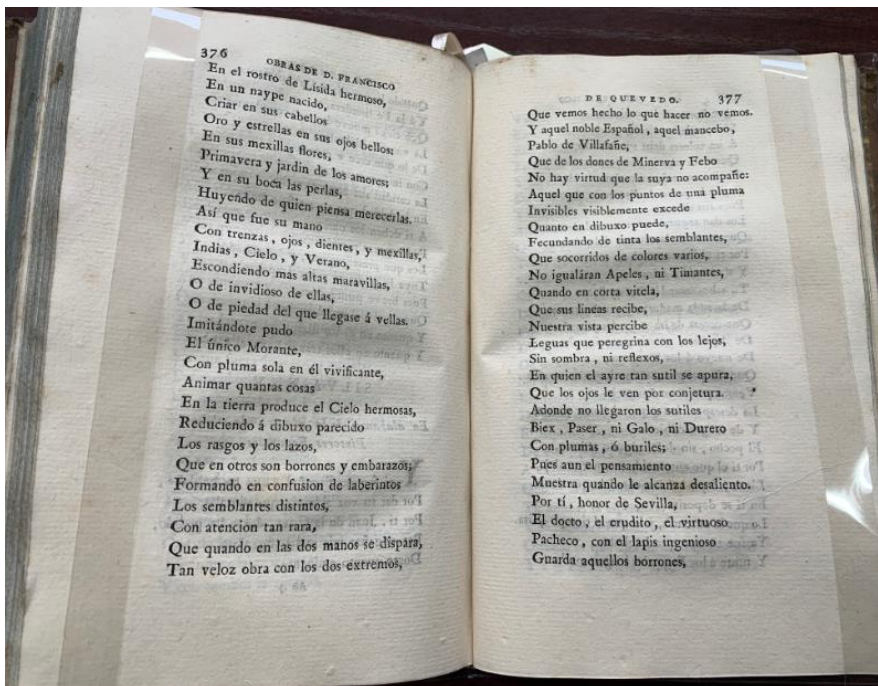 376
OBRAS DE D. FRANCISCO
En el rostro de Lísida hermoso,
En un naype nacido,
Criar en sus cabellos
Oro y estrellas en sus ojos bellos:
En sus mexillas flores,
Primavera y jardin de los amores;
Y en su boca las perlas,
Huyendo de quien piensa merecerlas.
Así que fue su mano
Con trenzas, ojos, dientes, y mexillas,
Indias, Cielo, y Verano,
Escondiendo mas altas maravillas,
O de invidioso de ellas,
O de piedad del que llegase á vellas.
Imitándote pudo
El único Morante,
Con pluma sola en él vivificante,
Animar quantas cosas
En la tierra produce el Cielo hermosas,
Reduciendo á dibuxo parecido
Los rasgos y los lazos,
Que en otros son borrones y embarazos;
Formando en confusion de laberintos
Los semblantes distintos,
Con atencion tan rara,
Que quando en las dos manos se dispara,
Tan veloz obra con los dos extremos,
DE QUEVEDO. 377
Que vemos hecho lo que hacer no vemos.
Y aquel noble Español, aquel mancebo,
Pablo de Villafañe,
Que de los dones de Minerva y Febo
No hay virtud que la suya no acompañe:
Aquel que con los puntos de una pluma
Invisibles visiblemente excede
Quanto en dibuxo puede,
Fecundando de tinta los semblantes,
Que socorridos de colores varios,
No igualáran Apeles, ni Timantes,
Quando en corta vitela,
Que sus lineas recibe,
Nuestra vista percibe
Leguas que peregrina con los lejos,
Sin sombra, ni reflexos,
En quien el ayre tan sutil se apura,
Que los ojos le ven por conjetura.
Adonde no llegaron los sutiles
Biex, Paser, ni Galo, ni Durero
Con plumas, ó buriles;
Pues aun el pensamiento
Muestra quando le alcanza desaliento.
Por tí, honor de Sevilla,
El docto, el erudito, el virtuoso
Pacheco, con el lapis ingenioso
Guarda aquellos borrones,